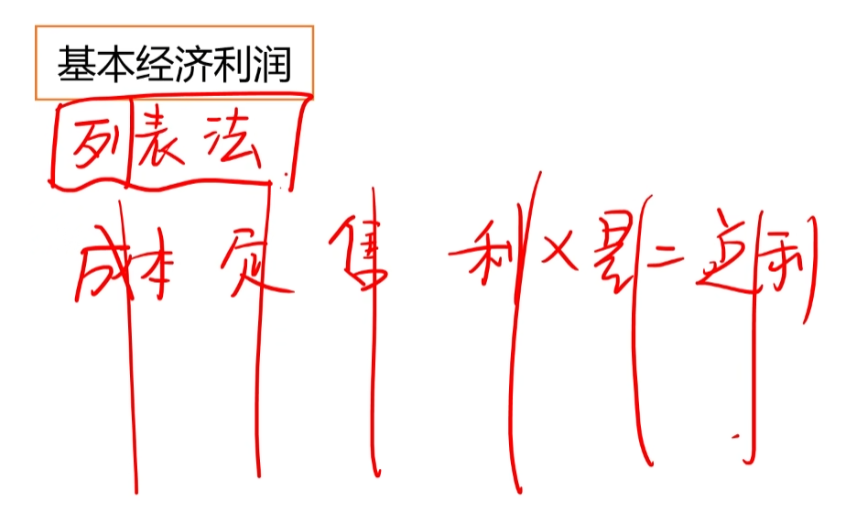 基本经济利润
列表法
成本 定 售 利×量=总利